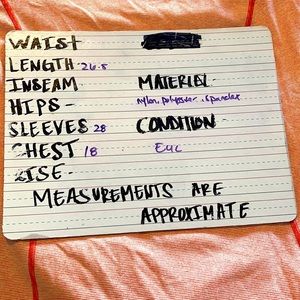 WAIST
LENGTH 26.5
INSEAM
MATERIAL -
HIPS -
nylon, polyester, spandex
SLEEVES 28
CONDITION -
CHEST 18
EUC
RISE -
MEASUREMENTS ARE
APPROXIMATE